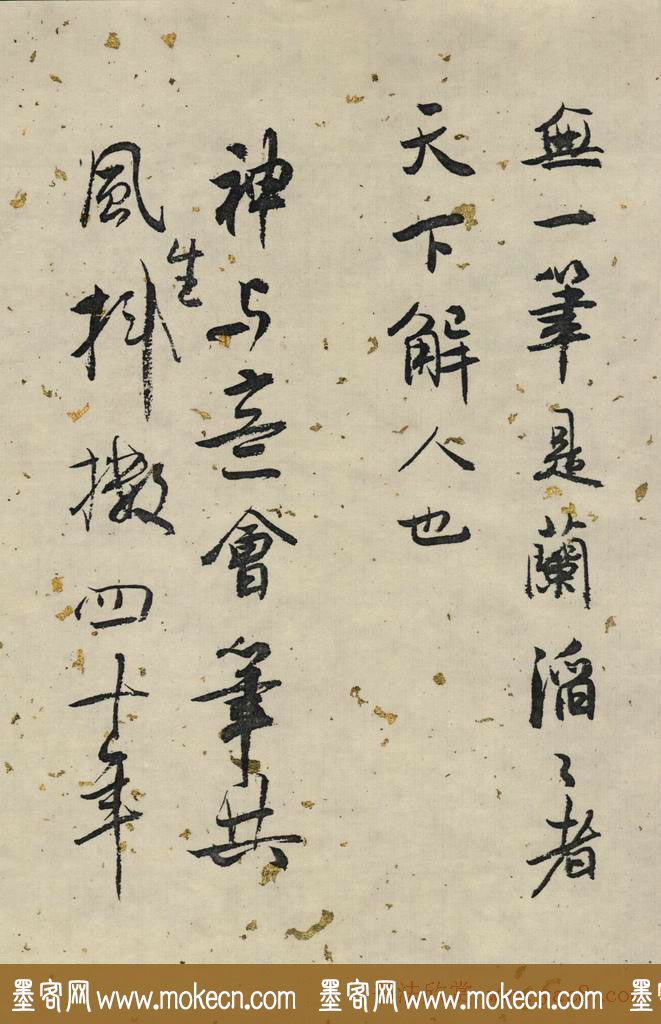 無一筆是蘭滔々者
天下解人也
神与意會筆共
風生抖擻四十年
墨客网 www.mokecn.com 墨客网 www.mokecn.com